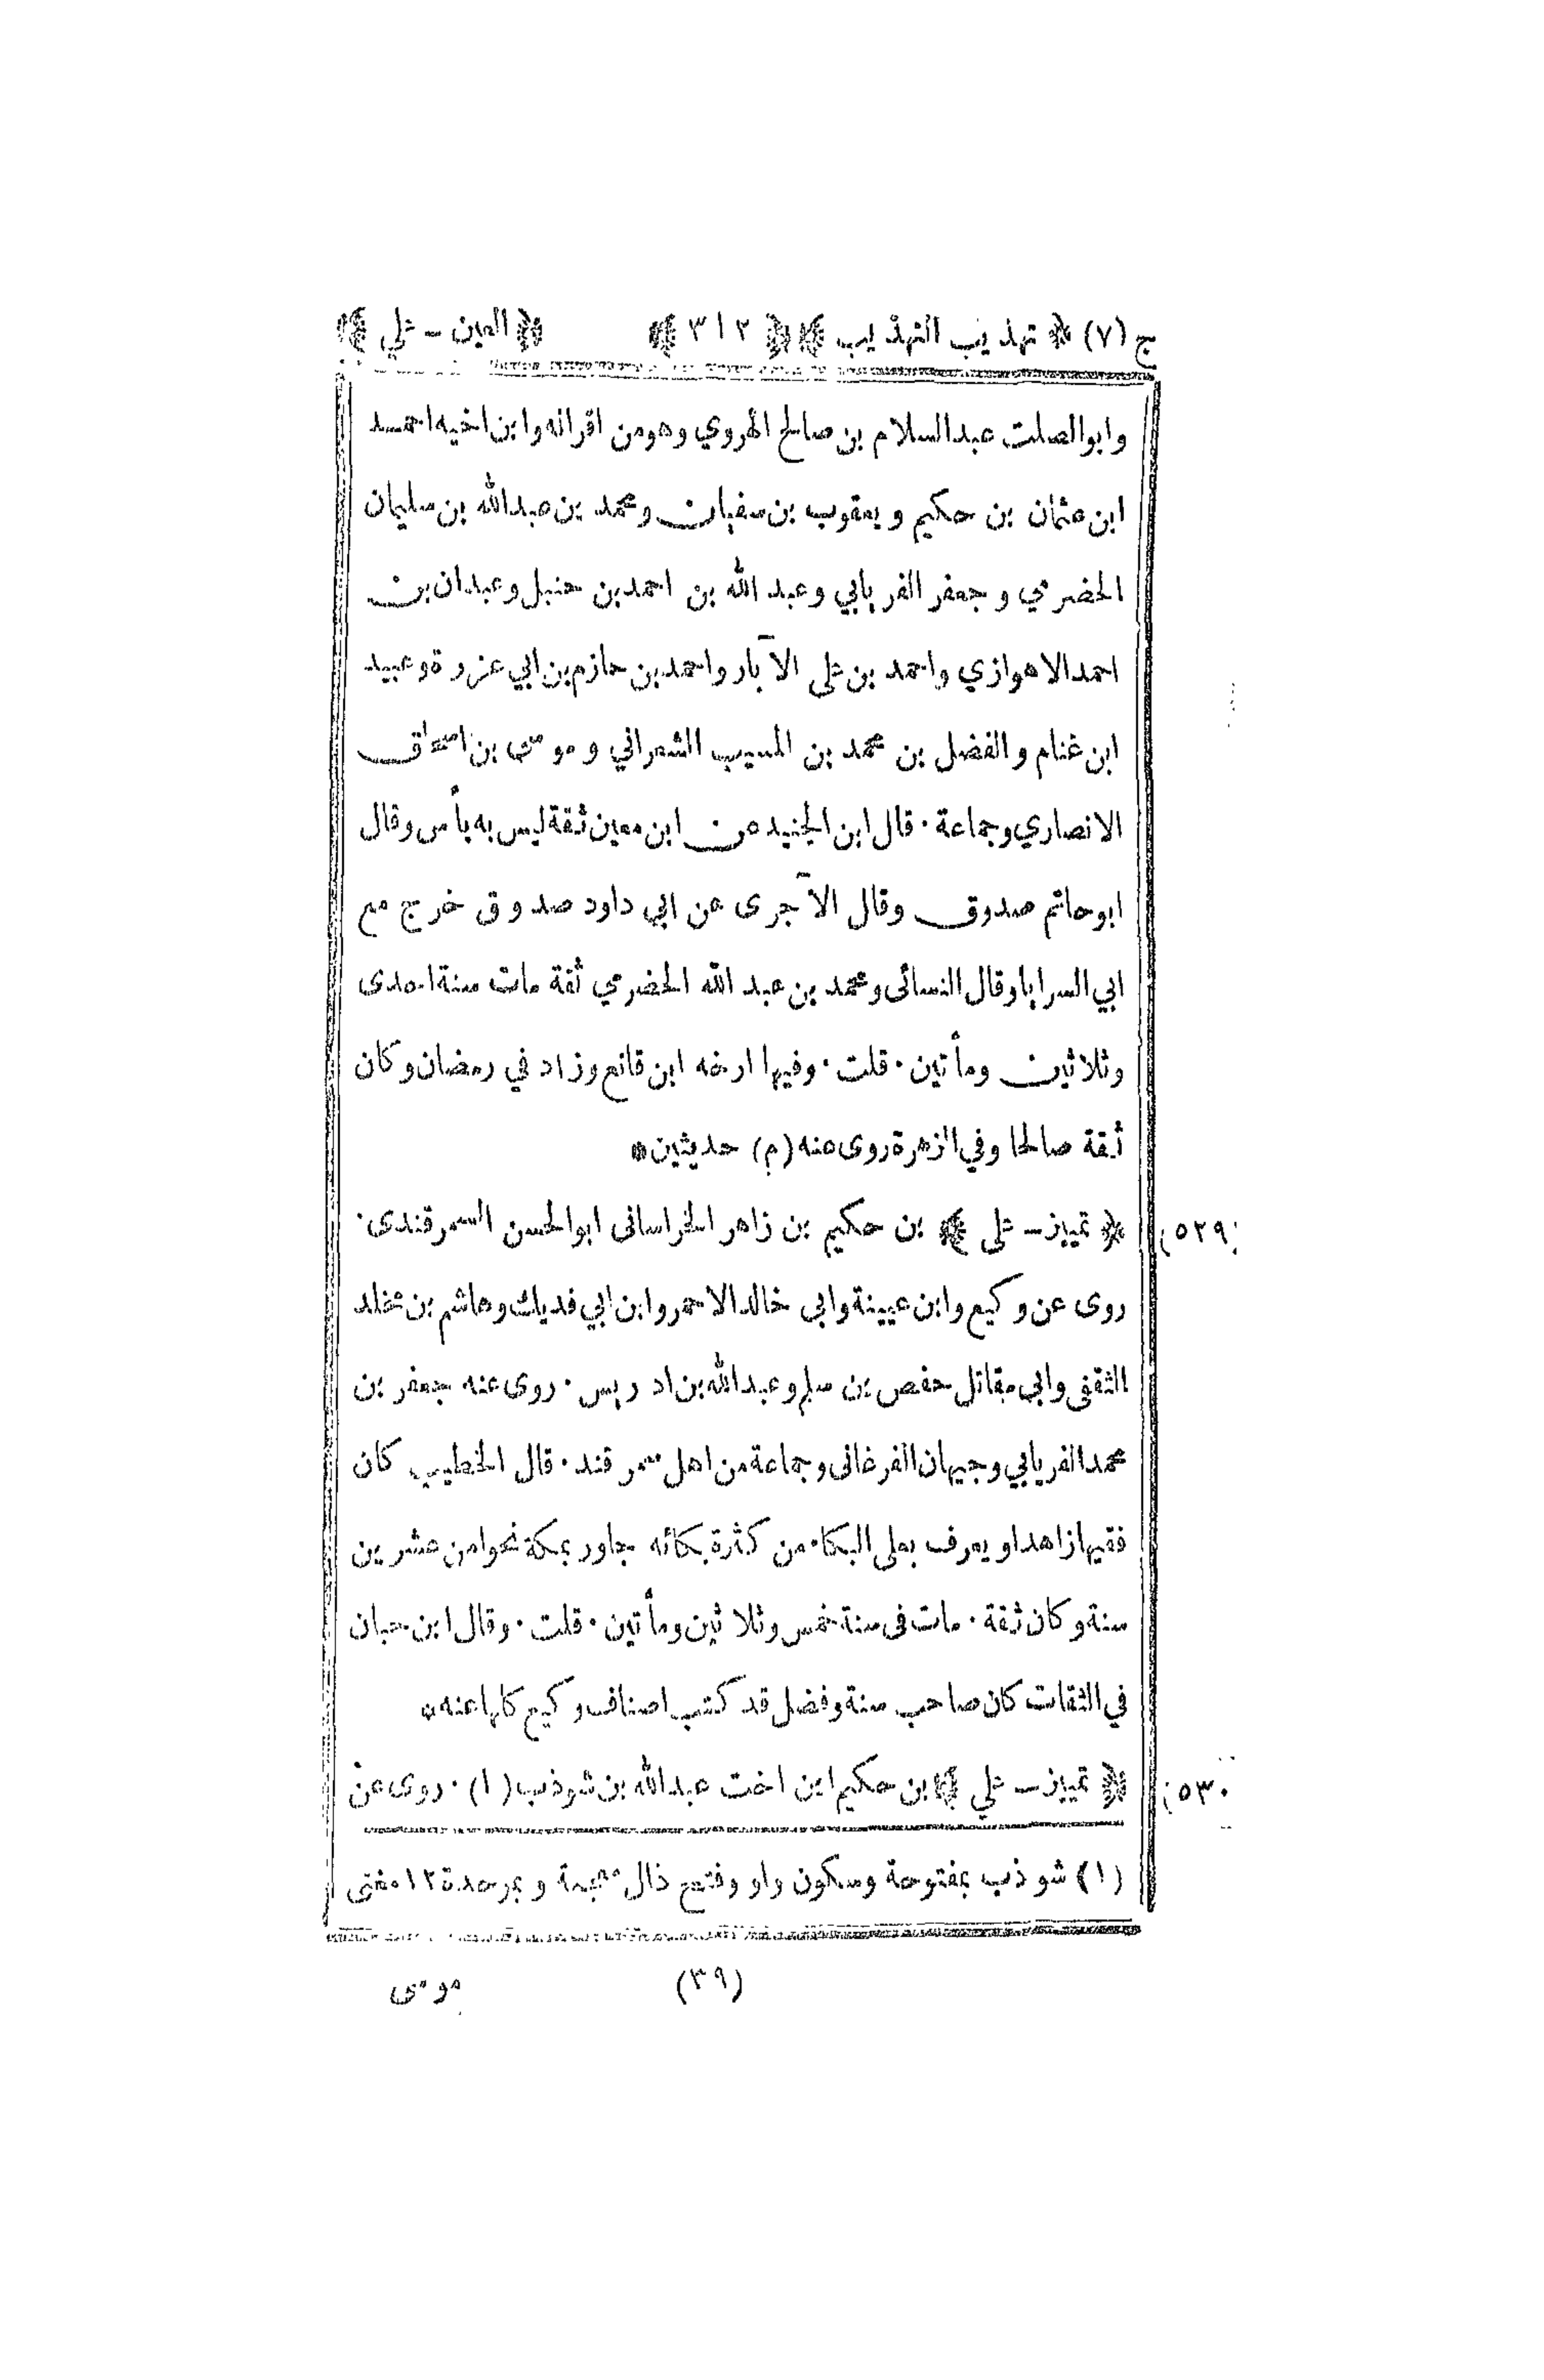 ج (٧) ﴿ تهذيب التهذيب ﴾ ﴿ ٣١٢ ﴾ ﴿ العين ــ علي ﴾
وابوالصلت عبدالسلام بن صالح الهروي وهومن اقرانه وابن اخيه احمد
ابن عثمان بن حكيم ويعقوب بن سفيان ومحمد بن عبدالله بن سليمان
الحضرمي وجعفر الفريابي وعبد الله بن احمد بن حنبل وعبدان بن
احمد الاهوازي واحمد بن على الآبار واحمد بن حازم بن ابي عزرة وعبيد
ابن غنام والفضل بن محمد بن المسيب الشعراني وموسى بن اسحاق
الانصاري وجماعة · قال ابن الجنيد عن ابن معين ثقة ليس به بأس وقال
ابوحاتم صدوق وقال الآجرى عن ابي داود صدوق خرج مع
ابي السرايا وقال النسائى ومحمد بن عبد الله الحضرمي ثقة مات سنة احدى
وثلاثين ومأتين · قلت · وفيها ارخه ابن قانع وزاد في رمضان وكان
ثقة صالحا وفي الزهرة روى عنه (م) حديثين *
(٥٢٩) ﴿ تمييز ــ على ﴾ بن حكيم بن زاهر الخراسانى ابوالحسن السمرقندى ·
روى عن وكيع وابن عيينة وابى خالد الاحمر وابن ابي فديك وهاشم بن مخلد
الثقفى وابى مقاتل حفص بن سلم وعبدالله بن ادريس · روى عنه جعفر بن
محمد الفريابي وجيهان الفرغانى وجماعة من اهل سمرقند · قال الخطيب كان
فقيها زاهدا ويعرف بعلى البكاء من كثرة بكائه جاور بمكة نحوا من عشرين
سنة وكان ثقة · مات فى سنة خمس وثلاثين ومأتين · قلت · وقال ابن حبان
في الثقات كان صاحب سنة وفضل قد كتب اصناف وكيع كلها عنه *
(٥٣٠) ﴿ تمييز ــ علي ﴾ بن حكيم ابن اخت عبدالله بن شوذب (١) · روى عن
(١) شوذب بمفتوحة وسكون واو وفتح ذال معجمة وبموحدة ١٢ مغنى
(٣٩) موسى